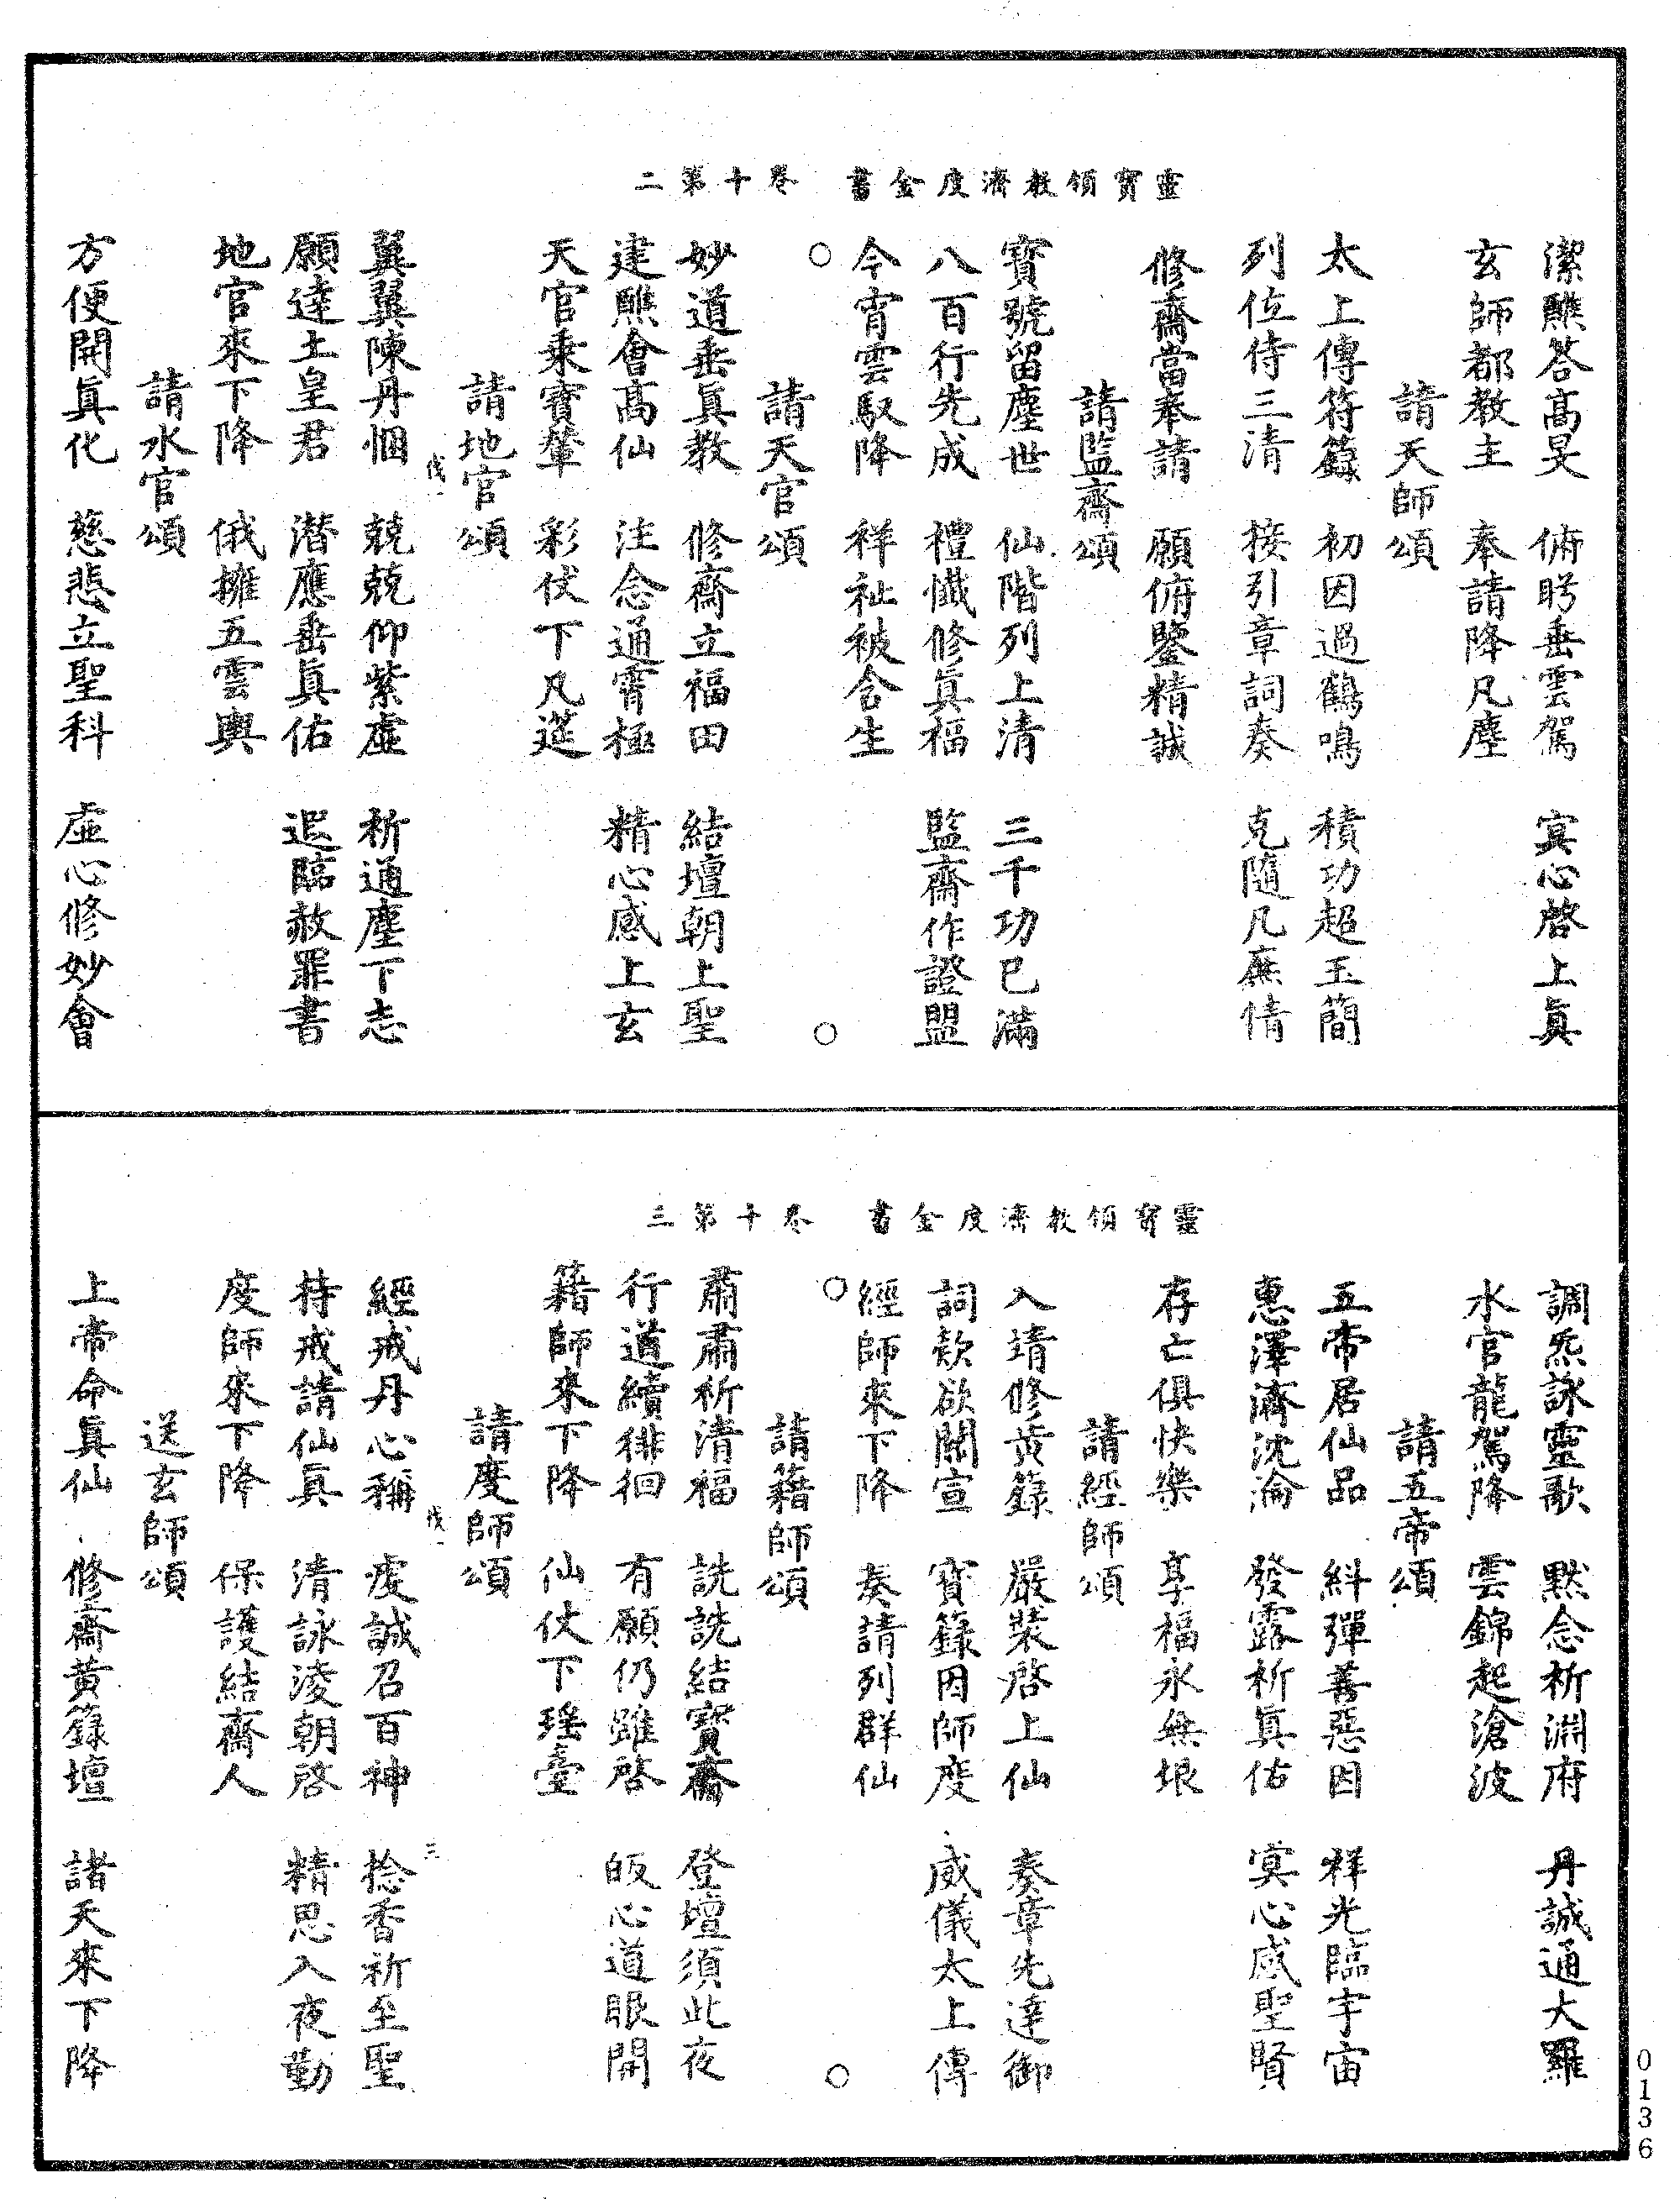 靈寶領教濟度金書　卷十　第二
潔醮答高旻　俯盻垂雲駕　寞心啓上眞
玄師都教主　奉請降凡塵
請天師頌
太上傳符籙　初因過鶴鳴　積功超玉簡
列位侍三清　接引章詞奏　克隨凡庶情
修齋當奉請　願俯鑒精誠
請監齋頌
寶號留塵世　仙階列上清　三千功已滿
八百行先成　禮懺修眞福　監齋作證盟
今宵雲馭降　祥祉被含生
請天官頌
妙道垂眞教　修齋立福田　結壇朝上聖
建醮會高仙　注念通霄極　精心感上玄
天官乘寶輦　彩仗下凡筵
請地官頌
翼翼陳丹悃　兢兢仰紫虛　祈通塵下志
願達土皇君　潛應垂眞佑　遐臨赦罪書
地官來下降　俄擁五雲輿
請水官頌
方便開眞化　慈悲立聖科　虛心修妙會
靈寶領教濟度金書　卷十　第三
調炁詠靈歌　默念祈淵府　丹誠通大羅
水官龍駕降　雲錦起滄波
請五帝頌
五帝居仙品　糾彈善惡因　祥光臨宇宙
惠澤濟沈淪　發露祈眞佑　寞心感聖賢
存亡俱快樂　享福永無垠
請經師頌
入靖修黃籙　嚴裝啓上仙　奏章先達御
詞款欲關宣　寶籙因師度　威儀太上傳
經師來下降　奏請列群仙
請籍師頌
肅肅祈清福　詵詵結寶齋　登壇須此夜
行道續徘徊　有願仍雖啓　皈心道眼開
籍師來下降　仙仗下瑤臺
請度師頌
經戒丹心稱　虔誠召百神　捻香祈至聖
持戒請仙眞　清詠淩朝啓　精思入夜勤
度師來下降　保護結齋人
送玄師頌
上帝命眞仙　修齋黃籙壇　諸天來下降
0136